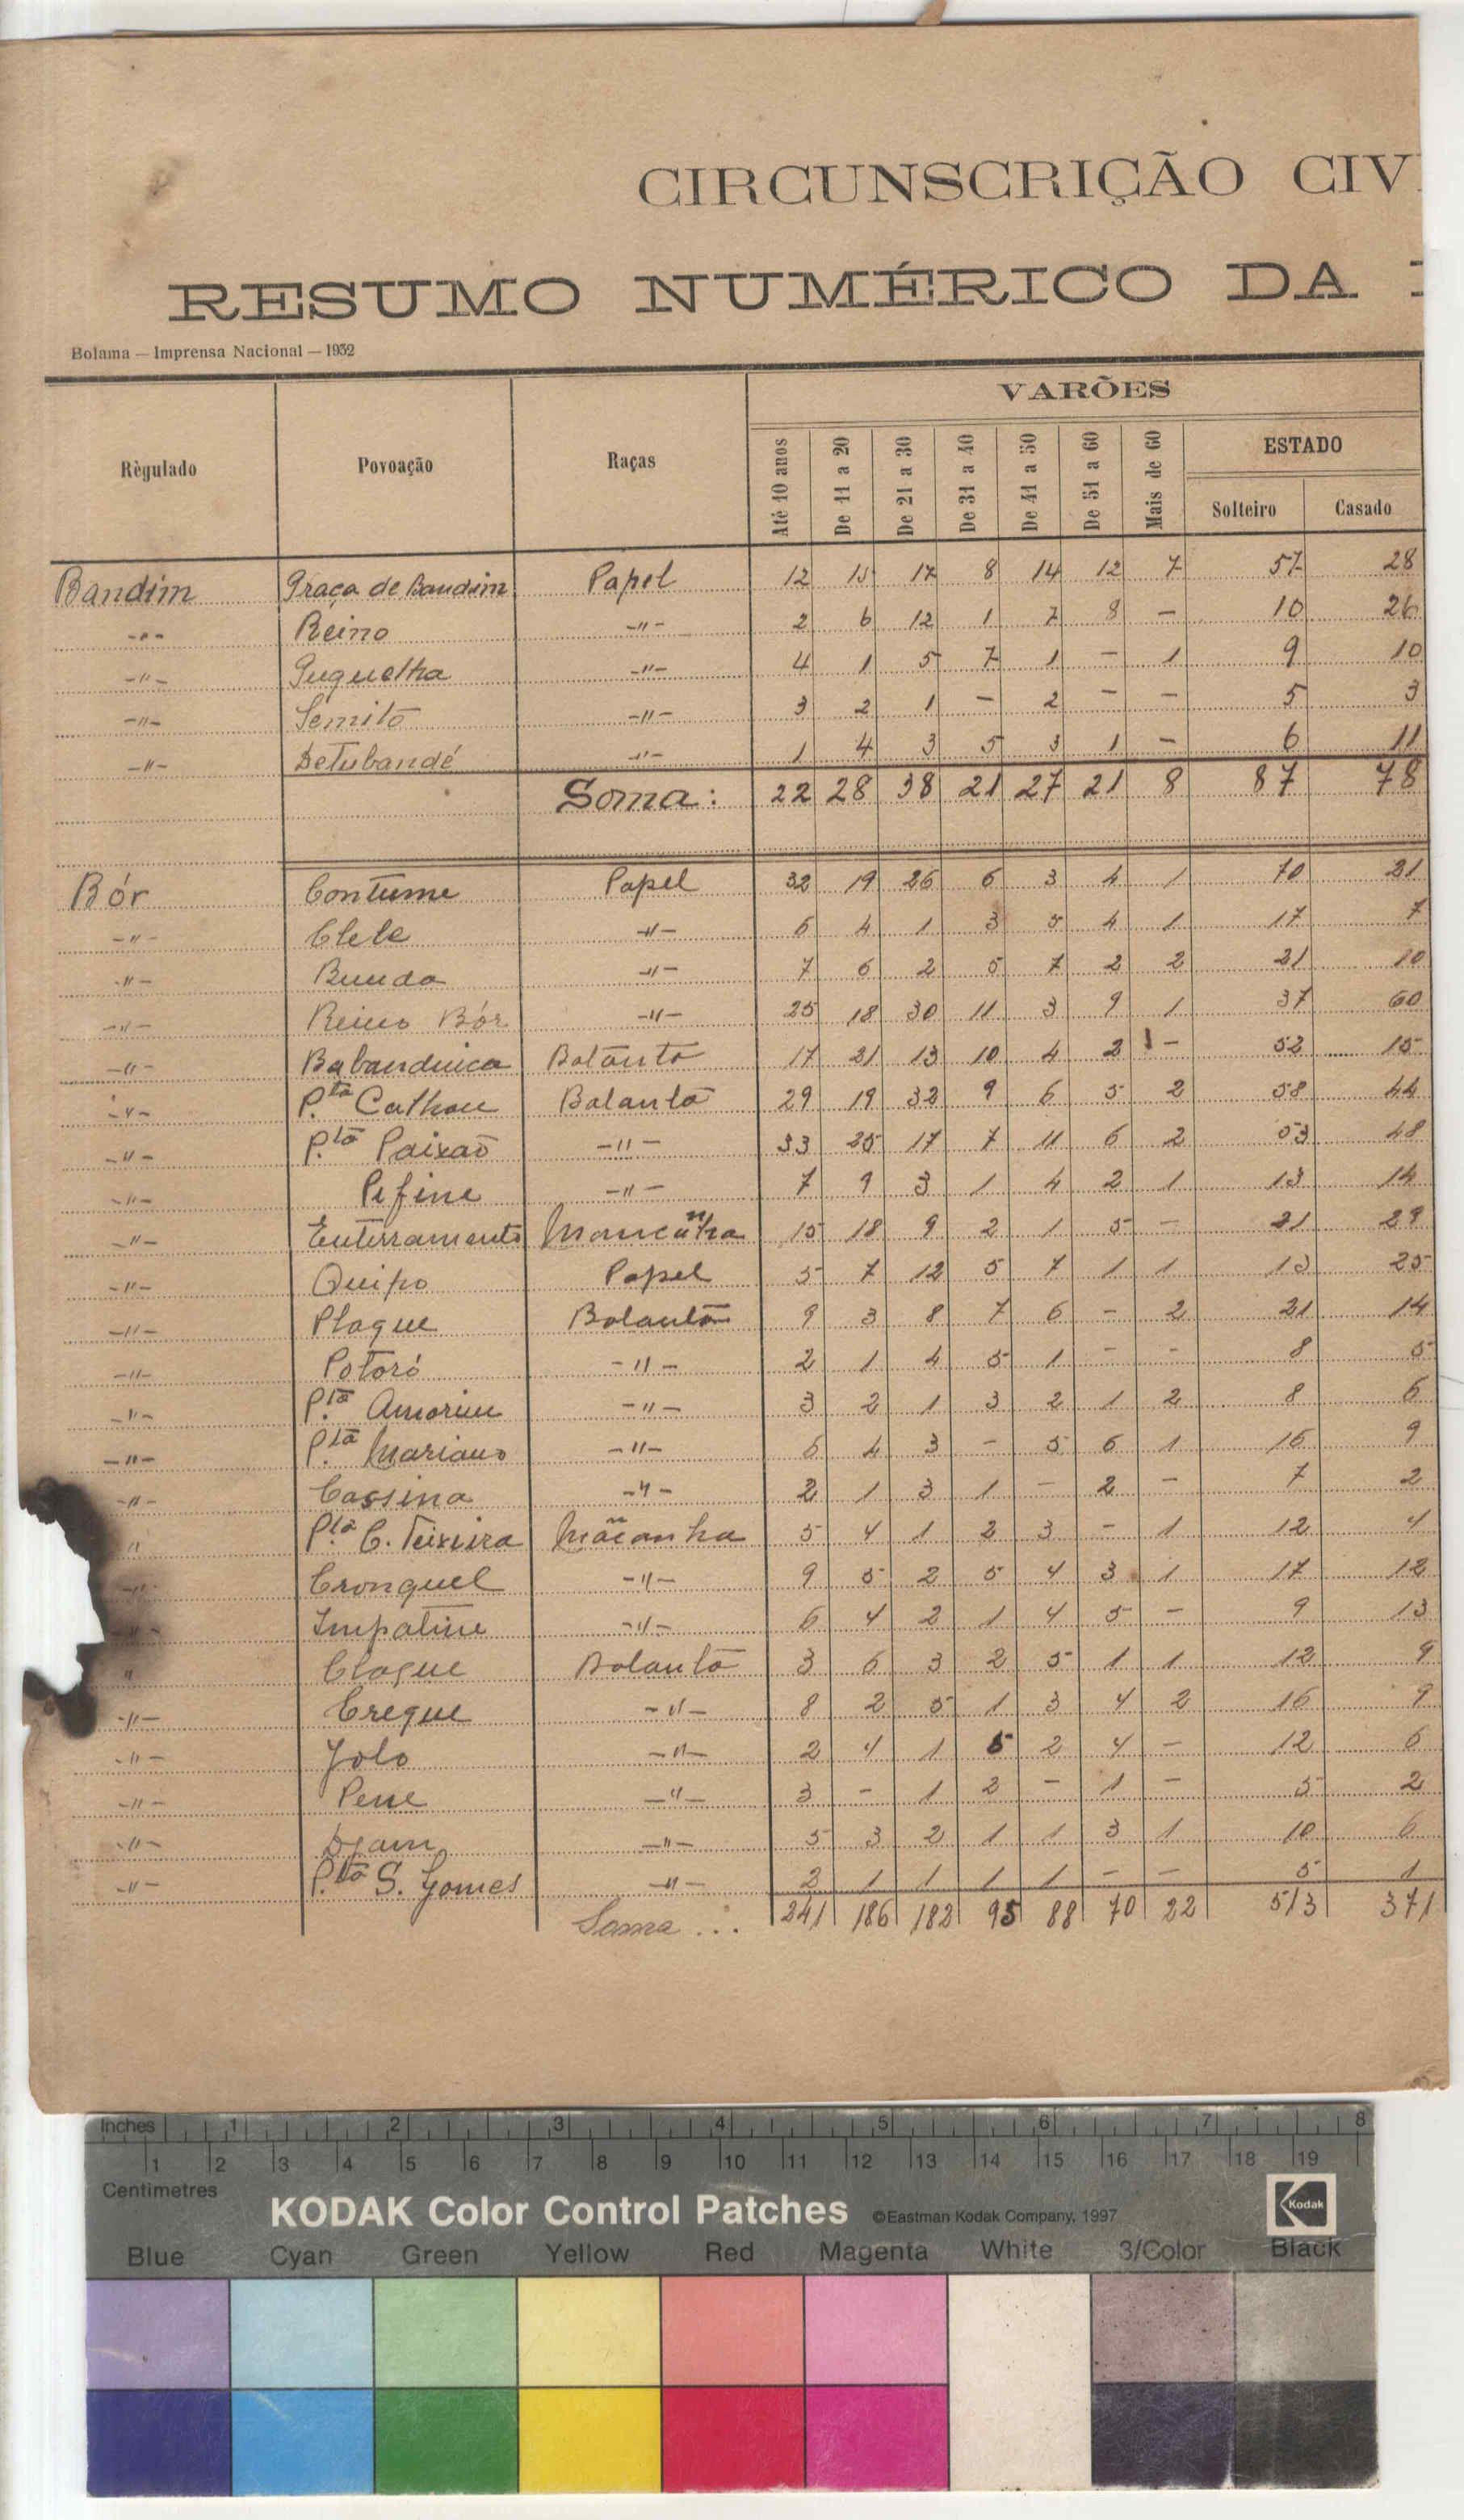 CIRCUNSCRIÇÃO CIV
RESUMO NUMÉRICO DA
Bolama — Imprensa Nacional — 1952
VARÕES
Règulado Povoação Raças Até 10 anos De 11 a 20 De 21 a 30 De 31 a 40 De 41 a 50 De 51 a 60 Mais de 60 ESTADO
Solteiro Casado
Bandim Praça de Bandim Papel 12 15 17 8 14 12 7 57 28
-"- Reino -"- 2 6 12 1 7 8 - 10 26
-"- Puguelha -"- 4 1 5 7 1 - 1 9 10
-"- Semitó -"- 3 2 1 - 2 - - 5 3
-"- Detubandé -"- 1 4 3 5 3 1 - 6 11
Soma: 22 28 38 21 27 21 8 87 78
Bór Contume Papel 32 19 26 6 3 4 1 70 21
-"- Clele -"- 6 4 1 3 5 4 1 17 7
-"- Bunda -"- 7 6 2 5 7 2 2 21 10
-"- Reino Bór -"- 25 18 30 11 3 9 1 37 60
-"- Babanduica Balanta 17 21 13 10 4 2 - 52 15
-"- P.ta Calhau Balanta 29 19 32 9 6 5 2 58 44
-"- P.ta Paixão -"- 33 25 17 7 11 6 2 53 48
-"- Pefine -"- 7 9 3 1 4 2 1 13 14
-"- Enterramento Mancanha 15 18 9 2 1 5 - 21 29
-"- Quipo Papel 5 7 12 5 7 1 1 13 25
-"- Plaque Balanta 9 3 8 7 6 - 2 21 14
-"- Potoró -"- 2 1 4 5 1 - - 8 5
-"- P.ta Amorim -"- 3 2 1 3 2 1 2 8 6
-"- P.ta Mariano -"- 6 4 3 - 5 6 1 16 9
-"- Cassina -"- 2 1 3 1 - 2 - 7 2
" P.ta C. Teixeira Mãcanha 5 4 1 2 3 - 1 12 4
-"- Cronquel -"- 9 5 2 5 4 3 1 17 12
" Impatine -"- 6 4 2 1 4 5 - 9 13
" Claque Balanta 3 6 3 2 5 1 1 12 9
-"- Creque -"- 8 2 5 1 3 4 2 16 9
-"- Jolo -"- 2 4 1 5 2 4 - 12 6
-"- Pene -"- 3 - 1 2 - 1 - 5 2
-"- Djam -"- 5 3 2 1 1 3 1 10 6
-"- P.ta S. Gomes -"- 2 1 1 1 1 - - 5 1
Soma ... 241 186 182 95 88 70 22 513 371
Inches 1 2 3 4 5 6 7 8
1 2 3 4 5 6 7 8 9 10 11 12 13 14 15 16 17 18 19
Centimetres
KODAK Color Control Patches ©Eastman Kodak Company, 1997 Kodak
Blue Cyan Green Yellow Red Magenta White 3/Color Black